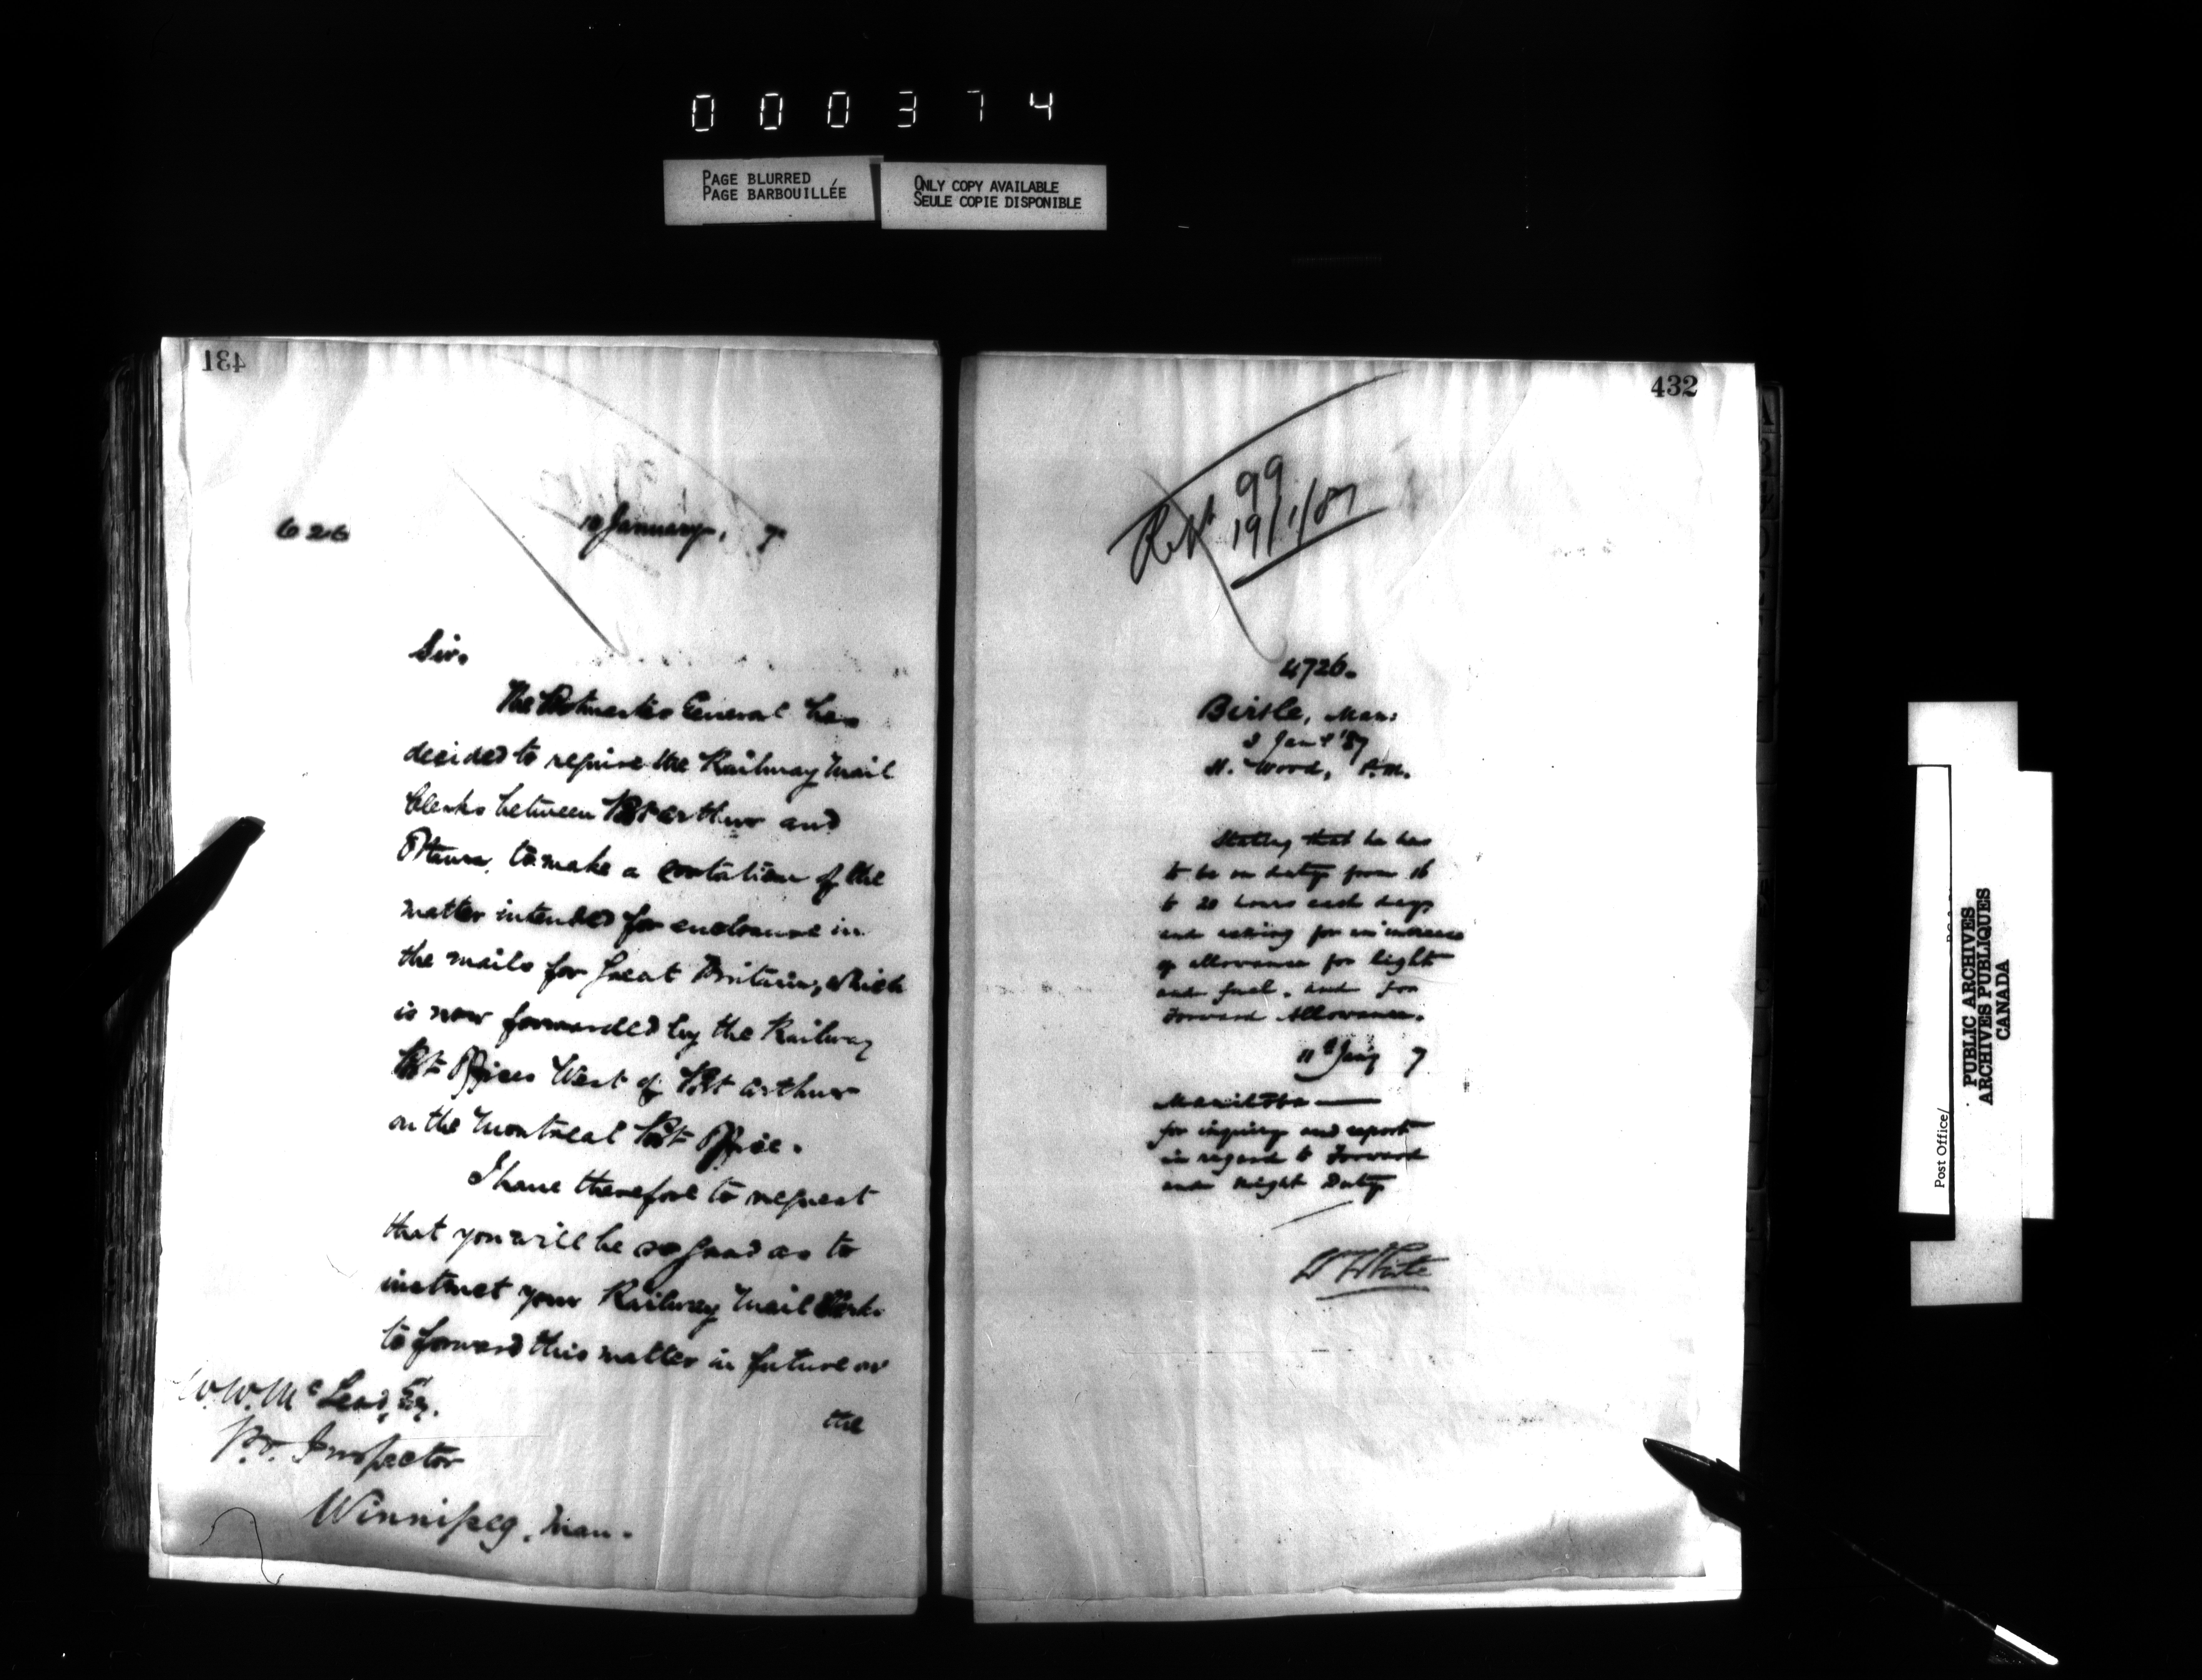 000374
PAGE BLURRED
PAGE BARBOUILLÉE
ONLY COPY AVAILABLE
SEULE COPIE DISPONIBLE
431
626
January, 7
Sir.
The Postmaster General has
decided to require the Railway Mail
Clerks between Port Arthur and
Ottawa, to make a of the
matter intended for enclosure in
the mails for Great Britain, which
is now forwarded by the Railway
Post Offices West of Port Arthur
on the Montreal Post Office.
I have therefore to request
that you will be so good as to
instruct your Railway Mail Clerks
to forward this matter in future on
the
W. W. McLeod, Esq.
P.O. Inspector
Winnipeg, Man.
432
99
19/1/87
4726.
Birtle, Man:
Jany '87
Wood, P.M.
Stating that he has
to be on duty from 16
to 20 hours each day
and asking for an increase
of allowance for light
and fuel, and for
Forward Allowance.
11th Jany 7
Manitoba —
for inquiry and report
in regard to Forward
and Night Duty
White
Post Office/
PUBLIC ARCHIVES
ARCHIVES PUBLIQUES
CANADA